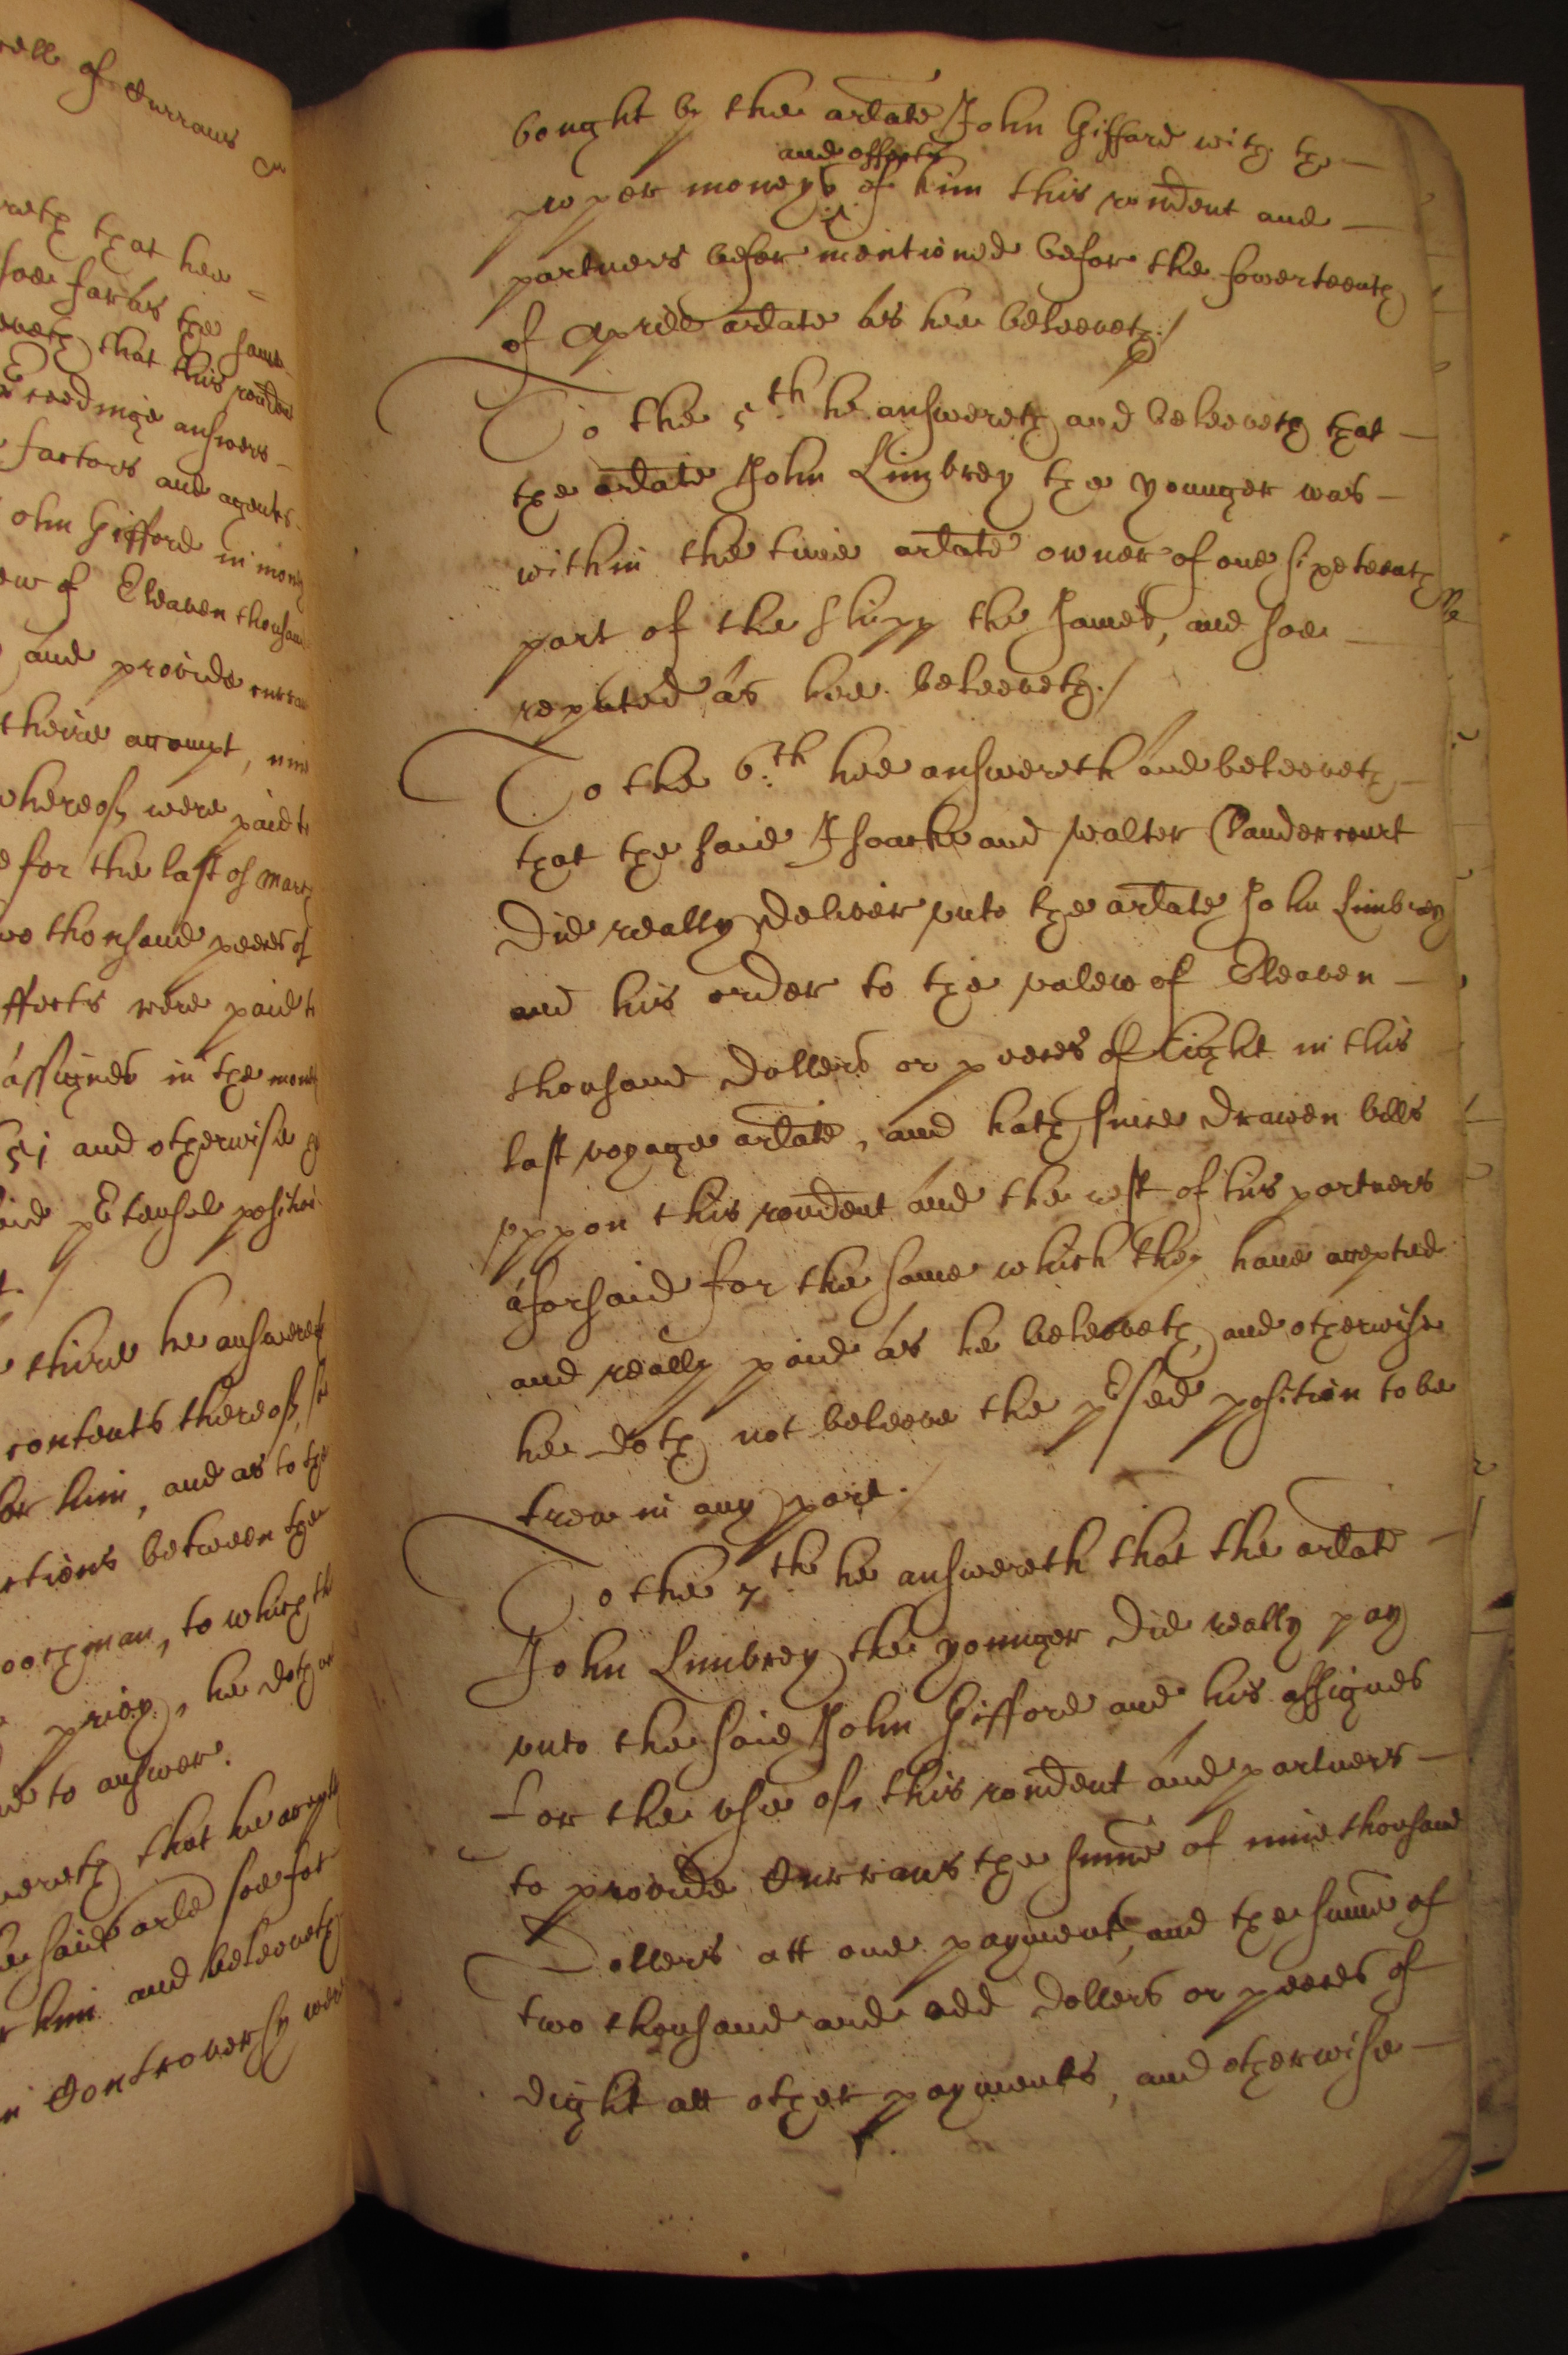 vell of Currans
reth that hee
soe far as the same
eveth that this rondent
receedinge answers
factors and agents
John Gifford in mony
ew of Eleaven thousand
and provide curran
theire accompt, nine
whereof were paid to
for the last of March
two thousand peeces of
ffects were paid to
assignes in the mony
51 and otherwise
said pretensed position
third he answereth
contents thereof,
for him, and as to the
ctions between the
priop, he doth
to answer.
wereth that he
the said arle soe far
him and beleeveth
in Controversy were
bought by the arlate John Giffard with the
and effects
proper moneys of him this rondent and
partners befor mentioned befor the fowerteenth
of Aprill arlate as hee beleeveth./
To the 5th he answereth and beleeveth that
the arlate John Limbrey the younger was
within the time arlate owner of one sixteenth
part of the shipp the James, and soe
reputed as hee beleeveth./
To the 6th hee answereth and beleeveth
that the said Isaack and Walter Vandercourt
did really deliver unto the arlate John Limbrey
and his order to the valew of Eleaven
thousand Dollers or peeces of Eight in this
last voyage arlate, and hath since drawen bills
uppon this rondent and the rest of his partners
aforsaid for the same which they have accepted
and really paid as he beleeveth, and otherwise
he doth not beleeve the prsed position to be
trew in any part./
To the 7th he answereth that the arlate
John Limbrey the younger did really pay
unto the said John Gifford and his assignes
for the use of this rondent and partners
to provide Currans the sume of nine thousand
Dollers att one payment, and the sume of
two thousand and odd Dollers or peeces of
Eight att other payments, and otherwise